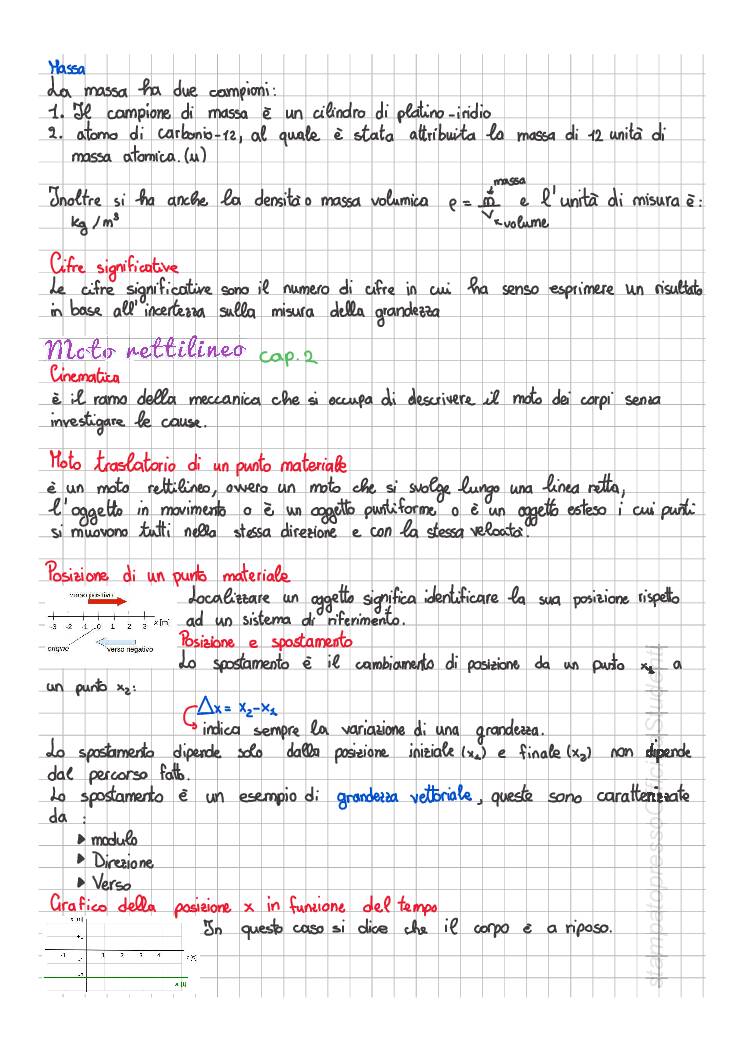 Massa
La massa ha due campioni:
1. Il campione di massa è un cilindro di platino-iridio
2. atomo di carbonio-12, al quale è stata attribuita la massa di 12 unità di
massa atomica. (u)
Inoltre si ha anche la densità o massa volumica ρ = m/V e l'unità di misura è:
massa
volume
kg/m³
Cifre significative
Le cifre significative sono il numero di cifre in cui ha senso esprimere un risultato
in base all'incertezza sulla misura della grandezza
Moto rettilineo cap.2
Cinematica
è il ramo della meccanica che si occupa di descrivere il moto dei corpi senza
investigare le cause.
Moto traslatorio di un punto materiale
è un moto rettilineo, ovvero un moto che si svolge lungo una linea retta,
l'oggetto in movimento o è un oggetto puntiforme o è un oggetto esteso i cui punti
si muovono tutti nella stessa direzione e con la stessa velocità.
Posizione di un punto materiale
verso positivo
-3 -2 -1 0 1 2 3 x[m]
origine
verso negativo
Localizzare un oggetto significa identificare la sua posizione rispetto
ad un sistema di riferimento.
Posizione e spostamento
Lo spostamento è il cambiamento di posizione da un punto x₁ a
un punto x₂:
Δx = x₂-x₁
indica sempre la variazione di una grandezza.
Lo spostamento dipende solo dalla posizione iniziale (x₁) e finale (x₂) non dipende
dal percorso fatto.
Lo spostamento è un esempio di grandezza vettoriale, queste sono caratterizzate
da :
▶ modulo
▶ Direzione
▶ Verso
Grafico della posizione x in funzione del tempo
In questo caso si dice che il corpo è a riposo.
-1 1 2 3 4
x (t)